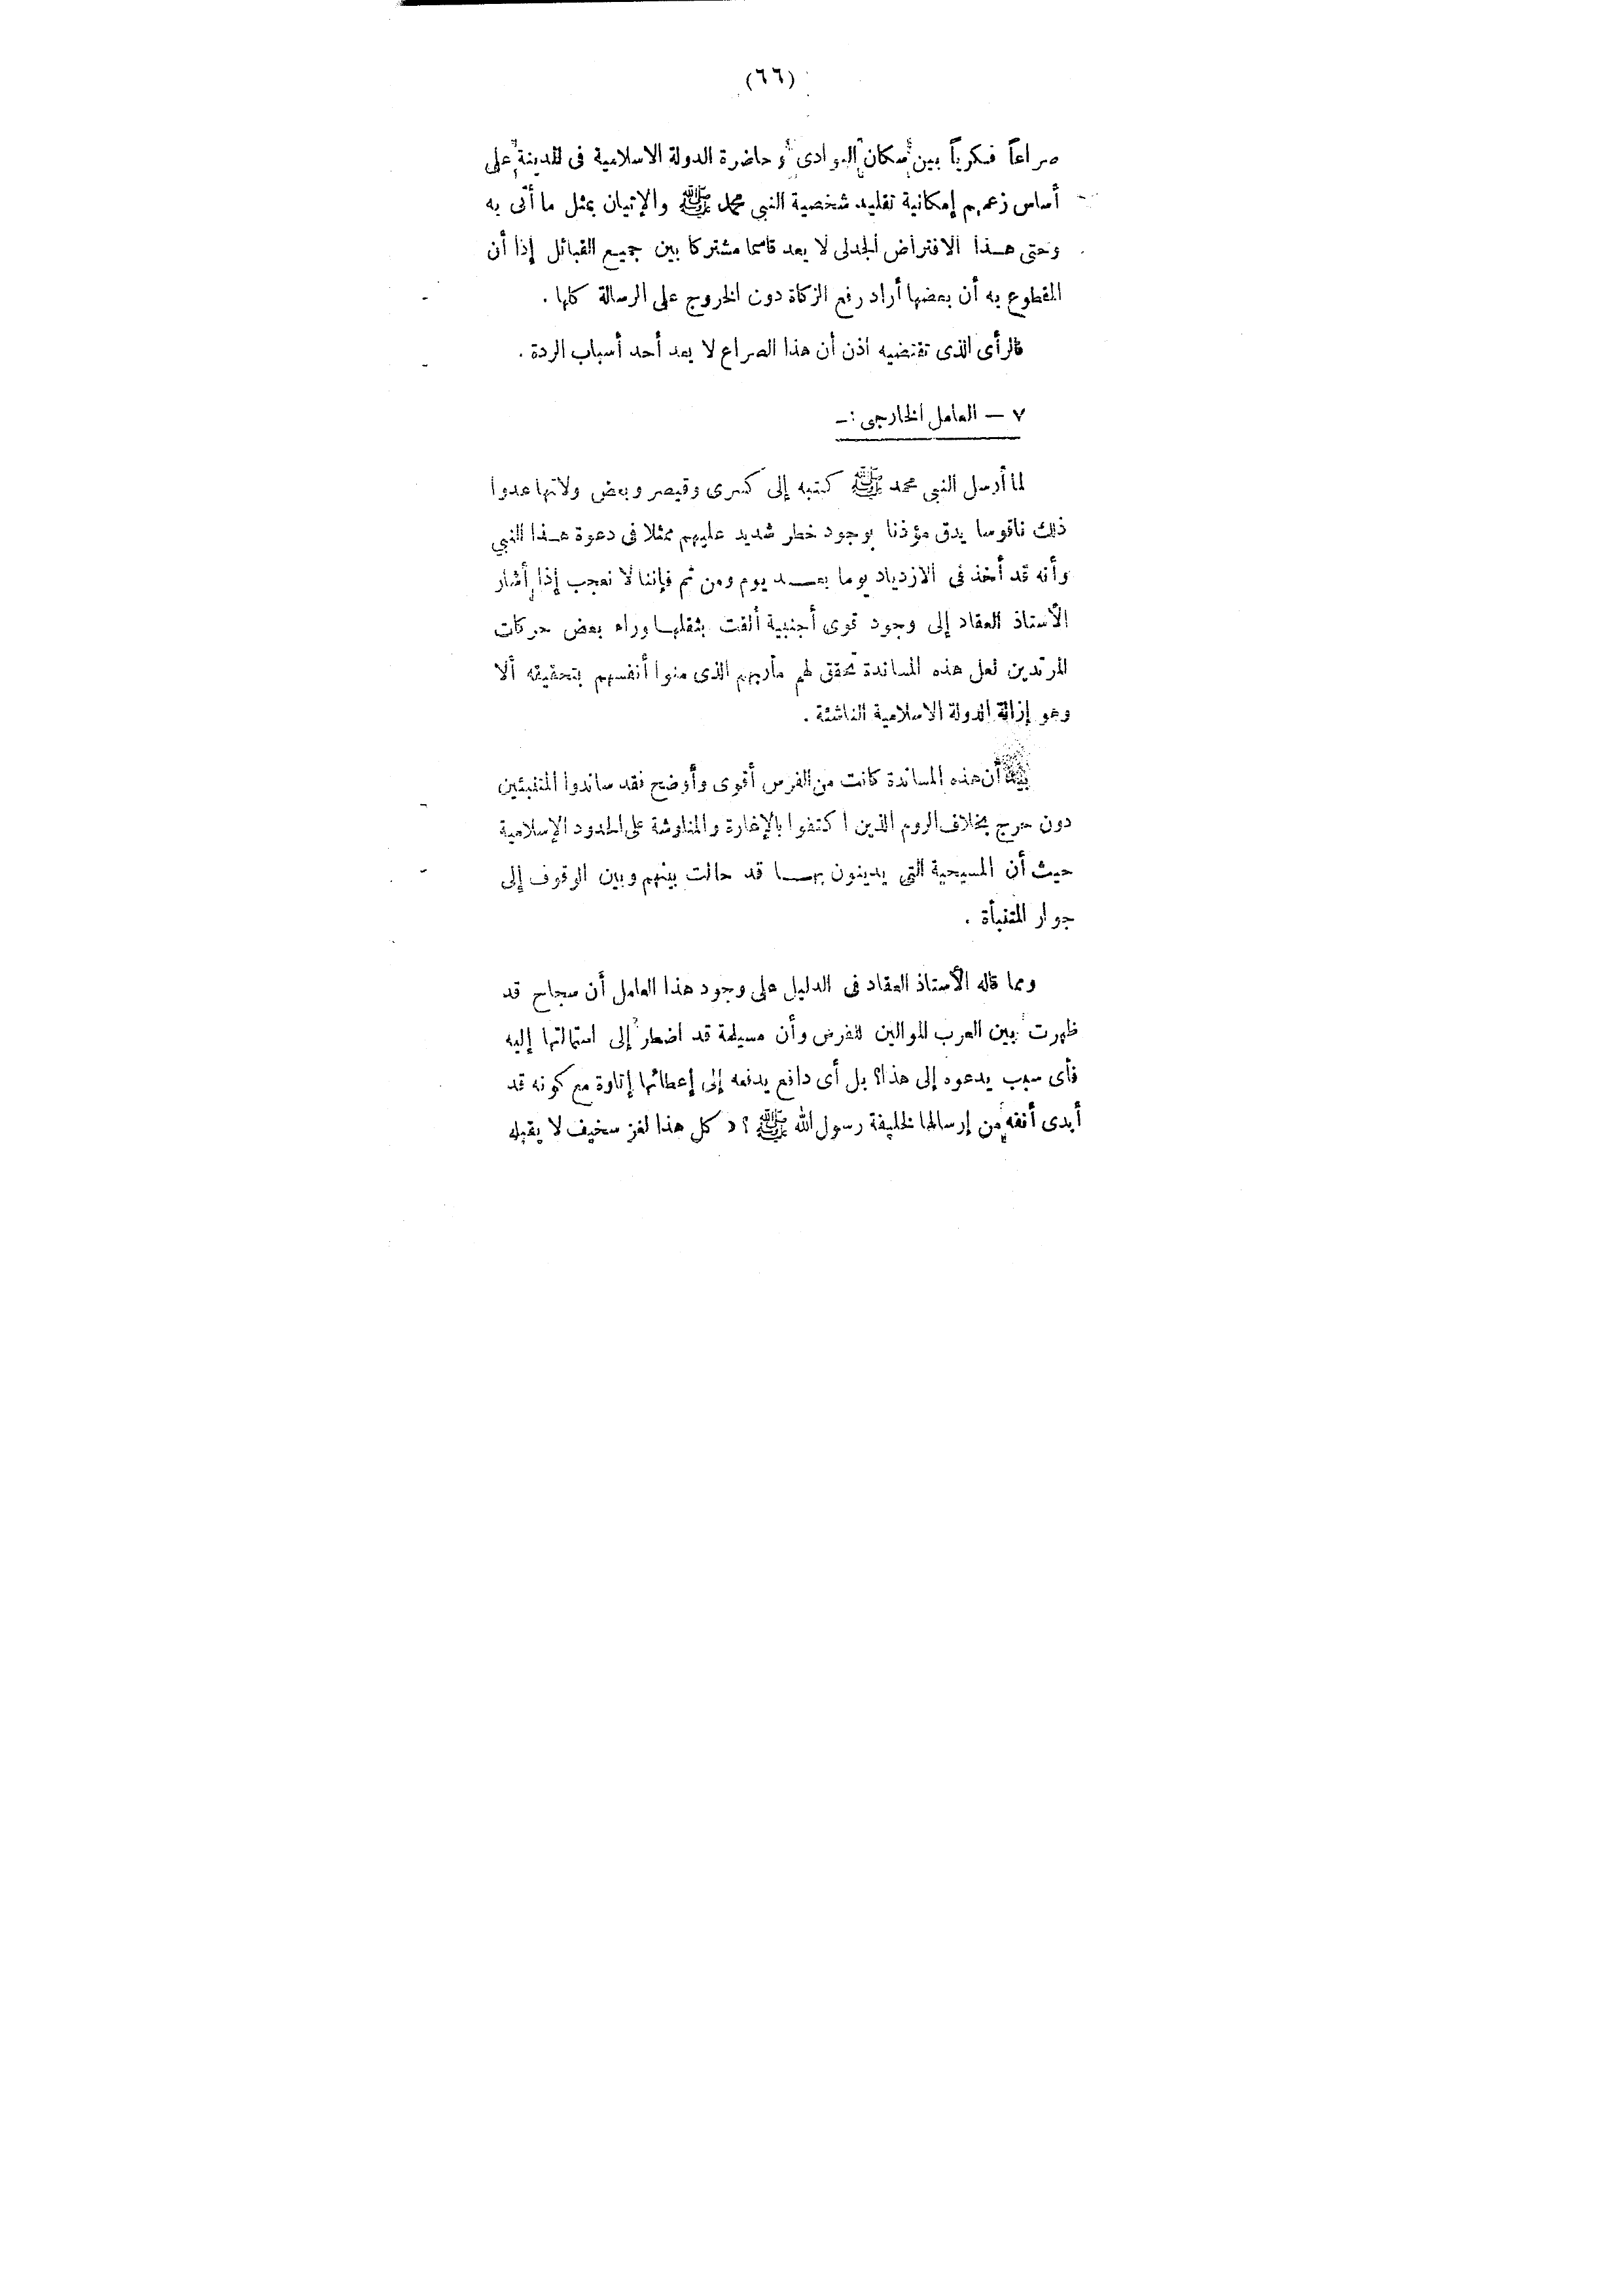 (٦٦)
صراعاً فكرياً بين سكان البوادى وحاضرة الدولة الاسلامية فى المدينة على
أساس زعمهم إمكانية تقليد شخصية النبي محمد ﷺ والإتيان بمثل ما أتى به
وحتى هذا الافتراض الجدلى لا يعد قاسما مشتركا بين جميع القبائل إذا أن
المقطوع به أن بعضها أراد رفع الزكاة دون الخروج على الرسالة كلها .
فالرأى الذى تقتضيه اذن أن هذا الصراع لا يعد أحد أسباب الردة .
٧ — العامل الخارجى :-
لما أرسل النبي محمد ﷺ كتبه إلى كسرى وقيصر وبعض ولاتها عدوا
ذلك ناقوسا يدق مؤذنا بوجود خطر شديد عليهم ممثلا فى دعوة هذا النبي
وأنه قد أخذ فى الازدياد يوما بعد يوم ومن ثم فإننا لا نعجب إذا أشار
الأستاذ العقاد إلى وجود قوى أجنبية ألقت بثقلها وراء بعض حركات
المرتدين لعل هذه المساندة تحقق لهم مآربهم الذى منوا أنفسهم بتحقيقه ألا
وهو إزالة الدولة الاسلامية الناشئة .
أن هذه المساندة كانت من الفرس أقوى وأوضح فقد ساندوا المتنبئين
دون حرج بخلاف الروم الذين اكتفوا بالإغارة والمناوشة على الحدود الإسلامية
حيث أن المسيحية التى يدينون بها قد حالت بينهم وبين الوقوف إلى
جوار المتنبأة .
ومما قاله الأستاذ العقاد فى الدليل على وجود هذا العامل أن سجاح قد
ظهرت بين العرب الموالين للفرس وأن مسيلمة قد اضطر إلى استمالتها إليه
فأى سبب يدعوه إلى هذا؟ بل أى دافع يدفعه إلى إعطائها إتاوة مع كونه قد
أبدى أنفه من إرسالها لخليفة رسول الله ﷺ ؟ « كل هذا لغز سخيف لا يقبله